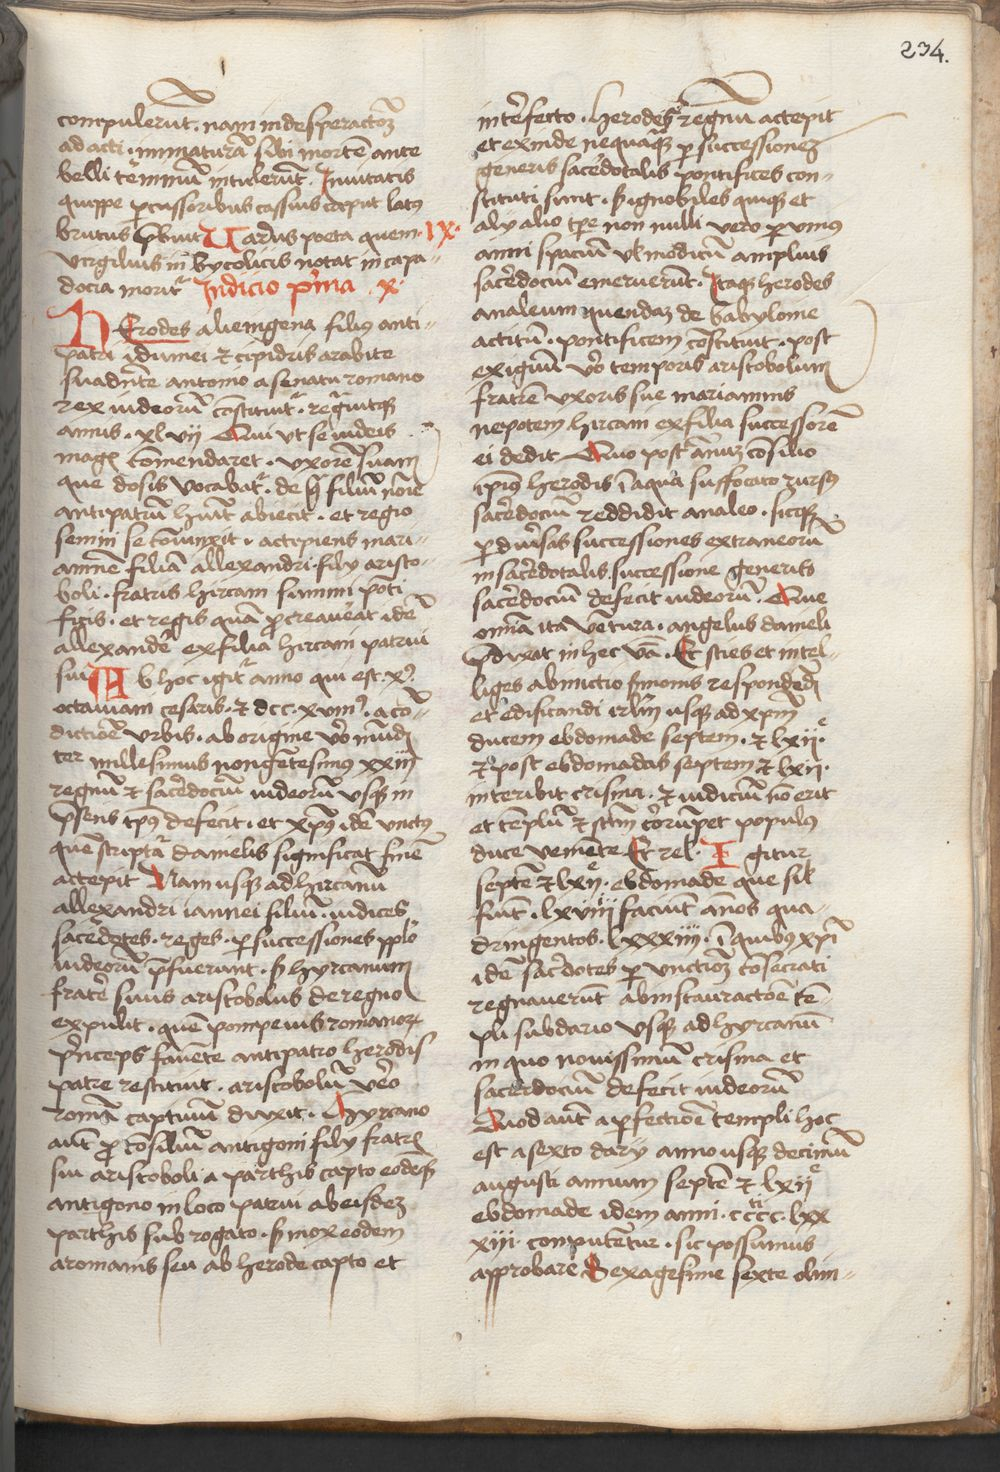 234.
compulerūt. nam in desperactōꝫ
ad acti. immaturā sibi mortē ante
belli t̄minū intulerūt. Inuitatis
quippe ꝑcussoribus cassius caput latꝰ
brutus p̄buit Uarius poeta quem. IX.
virgilius in bycolicis notat in capa-
docia moritᷣ Indicio p̄ma .x.
HErodes alienigena filiꝰ anti-
patri idumei ⁊ cipidris arabite
suadn̄te antonio a senatu romano
rex iudeorū cōstituitᷣ. regᷣuitqꝫ
annis. xlvij Qui vt se iudeis
magꝭ cōmendaret. vxorē suam
que dosis vocabatᷣ. de q̄ filiū noīe
antipatrū hūit abiecit. et regio
semini se cōiunxit. accipiens mari-
amnē filiā allexandri. filij aristo-
boli. fratris hircani summi pōti
ficis. et regis quā ꝓcreauēat idē
allexandē ex filia hircani patrui
sui Ab hoc igitᷣ anno qui est x᷒.
octauiani cesaris. ⁊ dcc. xviii᷒. a cō-
dictiōe vrbis. ab origine v̄o mūdi
ter millesimus nongētesimus xxiii
regnū ⁊ sac̄dociū iudeorū vsqꝫ in
p̄sens tp̄ꝰ defecit. et xp̄us idē vnctꝰ
quē scriptᷣa danielis significat finē
accepit Nam usqꝫ ad hircanū
allexandri iannei filiū. iudices
sac̄dotes. reges. ꝑ successiones ppl̄o
iudeorū p̄fuerunt. s̄ hyrcanum
fratē suus aristobolus de regno
expulit. quē pompeius romanoꝝ
p̄nceps fauēte antipatro herodis
patre restituit. aristobolū v̄o
romā captiuū duxit. Hyrcano
aūt ꝓ cōsiliū antigoni filij fratrꝭ
sui aristoboli a parthis capto eodēqꝫ
antigono in loco patrui ab eisdeꝫ
parthis subrogato. s̄ mox eodem
a romanis seu ab herode capto et
int̄fecto. herodes regnū accepit
et exinde nequaqꝫ ꝑ successioneꝫ
generis sac̄dotalis pontifices con-
stituti sunt. s̄ ignobiles quiqꝫ et
alij alio tp̄e non nulli vero ꝑ vnius
anni spaciū vl̄ modicū amplius
sac̄dociū emeruerūt. Itaqꝫ herodes
analeum quendaꝫ de babylonie
accitū. pontificem cōstituit. post
exiguū v̄o temporis aristobolum
fratrē vxoris sue mariamnis
nepotem hircani ex filia successorē
ei dedit Quo post ānuꝫ cōsilio
ip̄ius herodis ī aqua suffocato rursꝰ
sac̄dociū reddidit analeo. sicqꝫ
ꝑ diūsas successiones extraneorū
in sac̄dotalis successione generis
sac̄dociū defecit iudeorū. Que
om̄ia ita v̄etura. angelus danieli
p̄dixat in hec v̄a. Et scies et intel-
liges ab inictio s̄monis respondēdi
et edificandi irl̄m usqꝫ ad xp̄m
ducem ebdomade septem. ⁊ lxiiᵉ.
⁊ post ebdomadas septem ⁊ lxij.
interibit crisma. ⁊ iudiciū nō erit
et tēplū ⁊ scm̄ corūpet populus
duce veniēte Et rel. Igitur
septē ⁊ lxijᵉ. ebdomade que sil
fiūt. lxviiij faciūt ānos qua-
dringentos. lxxxiij. ī quibꝰ xpī
idē sac̄dotes ꝑ vnctioꝫ cōsecrati
regnauerūt ab instauractōe tē-
pli sub dario vsqꝫ ad hyrcanū
in quo nouissimū crisma et
sac̄dociū defecit iudeorū
Quod aūt a ꝑfectiōe templi hoc
est a sexto darij anno usqꝫ decimū
augusti annum septē ⁊ lxijᵉ
ebdomade idem anni. cccc. lxx
xiii. computētur. sic possumus
approbare Sexagesime sexte olim-